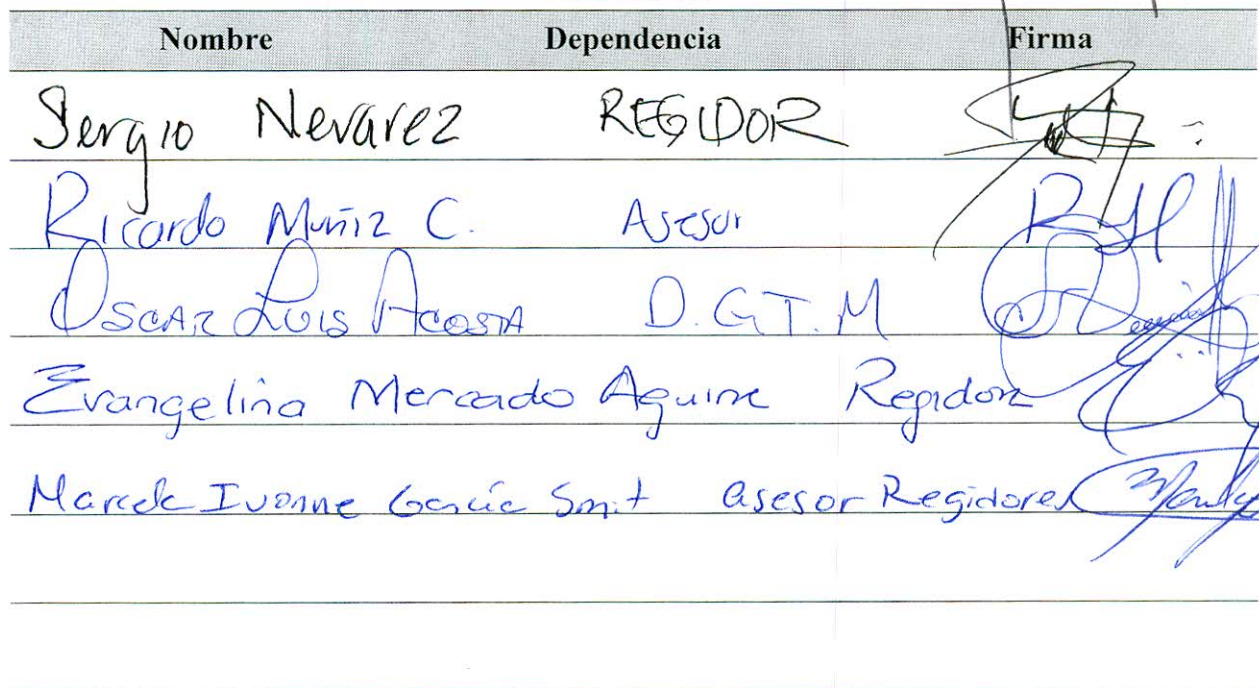 Nombre Dependencia Firma
Sergio Nevarez REGIDOR
Ricardo Muñiz C. Asesor
OSCAR LUIS ACOSTA D.G.T.M
Evangelina Mercado Aguirre Regidora
Marcela Ivonne García Smit asesor Regidores